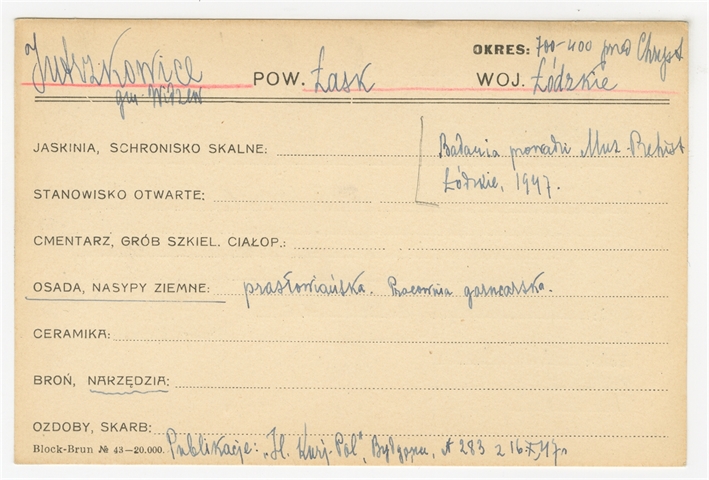 OKRES: 700-400 przed Chryst
Jutrzkowice POW. Łask WOJ. Łódzkie
gm. Widzew
JASKINIA, SCHRONISKO SKALNE: Badania prowadzi Muz. Prehist
STANOWISKO OTWARTE: Łódzkie, 1947.
CMENTARZ, GRÓB SZKIEL. CIAŁOP.:
OSADA, NASYPY ZIEMNE: prasłowiańska. Pracownia garncarska.
CERAMIKA:
BROŃ, NARZĘDZIA:
OZDOBY, SKARB:
Block-Brun № 43—20.000. Publikacje: „Il. Kurj. Pol", Bydgoszcz, 283 z 16.X.47